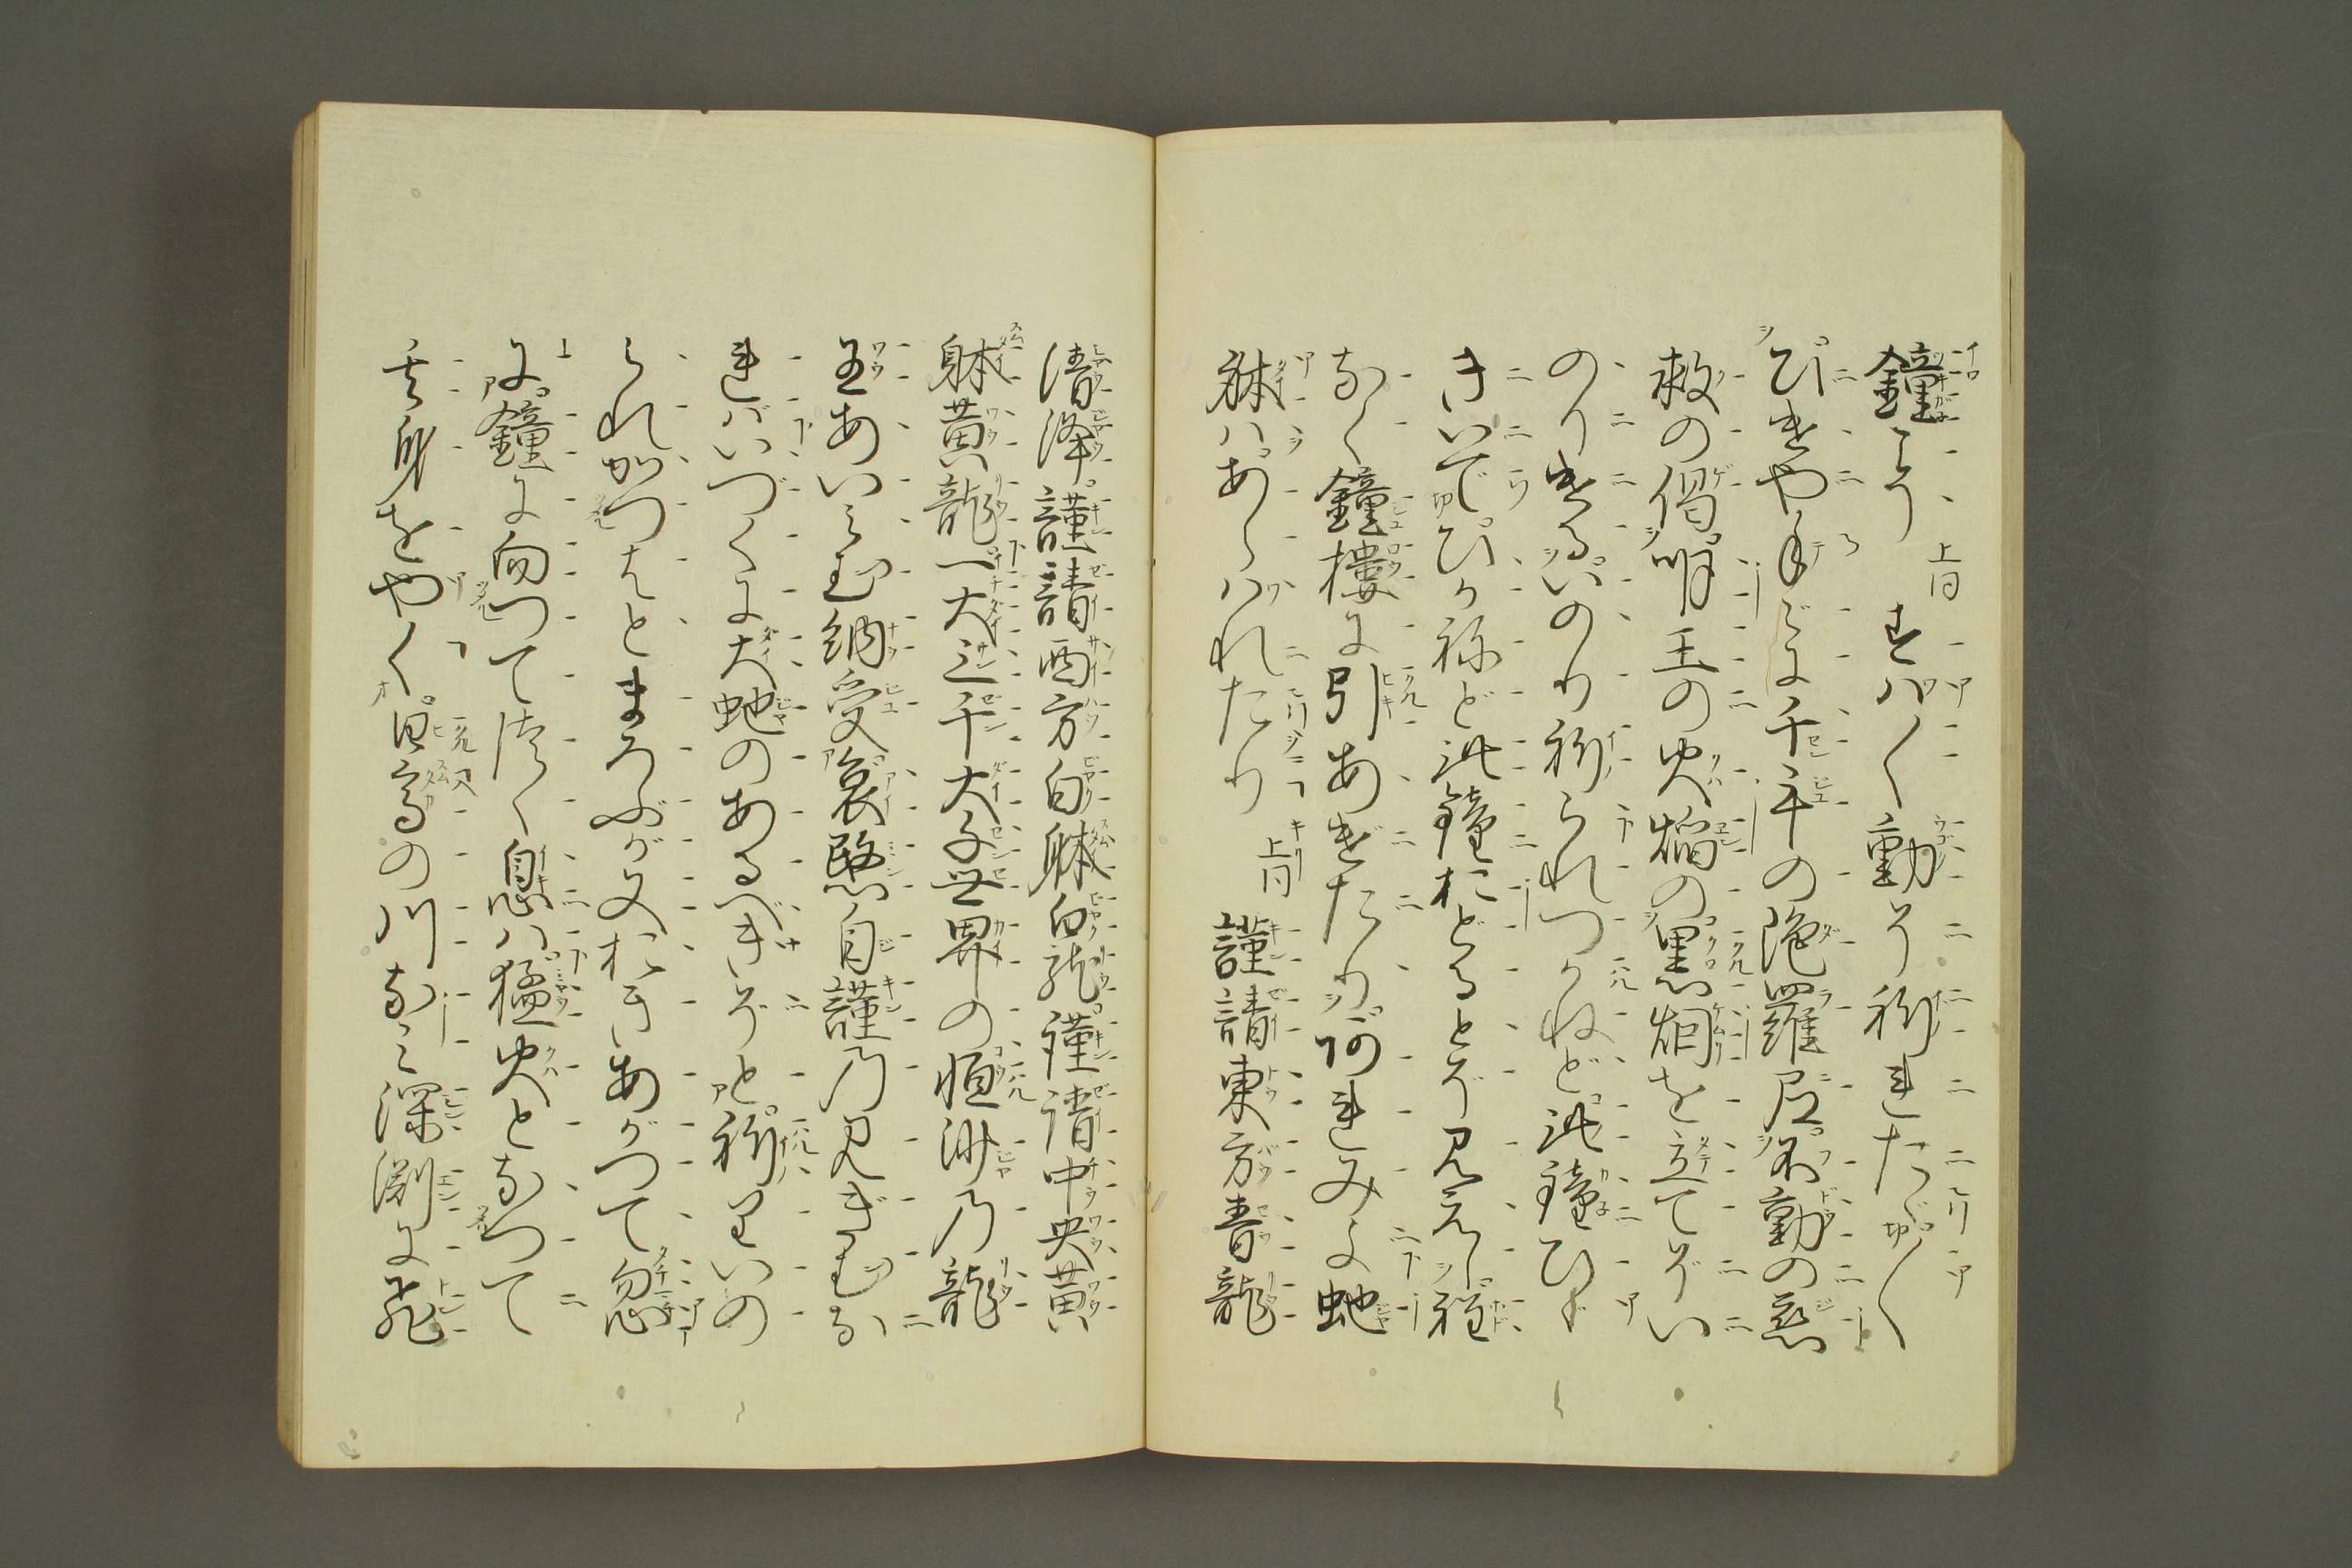 鐘こそ 上同 すハ〳〵動くそ祈れたゞ〳〵
ひけや手ごに千手の陀羅尼不動の慈
救の偈明王の火焔の黒烟を立てぞい
のりけるいのり祈られつかねど此鐘ひゞ
きいでひかねど此鐘おどるとぞ見えし程
なく鐘樓に引あげたりあれみよ蛇
躰ハあらハれたり 上同 謹請東方青龍
清浄謹請西方白躰白龍謹請中央黄
躰黄龍一大三千大千世界の恒沙乃龍
王あいらむ納受哀愍自謹乃みぎむな
ればいづくに大蛇のあるべきぞと祈りいの
られかつはとまろぶが又おきあがつて忽
に鐘に向つてつく息ハ猛火となつて
其身をやく日高の川なミ深淵に飛